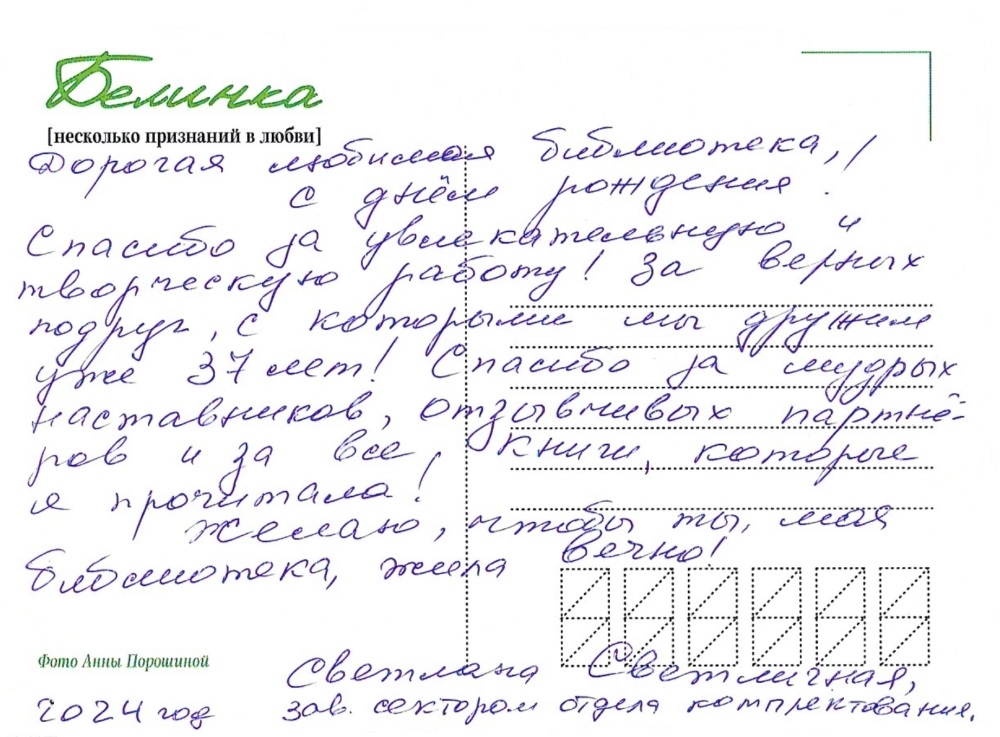 Белинка
[несколько признаний в любви]
Дорогая любимая библиотека,
с днём рождения!
Спасибо за увлекательную и
творческую работу! За верных
подруг, с которыми мы дружим
уже 37 лет! Спасибо за мудрых
наставников, отзывчивых партнё-
ров и за все, книги, которые
я прочитала!
Желаю, чтобы ты, моя
библиотека, жила вечно!
Фото Анны Порошиной
Светлана Светличная,
2024 год зав. сектором отдела комплектования.